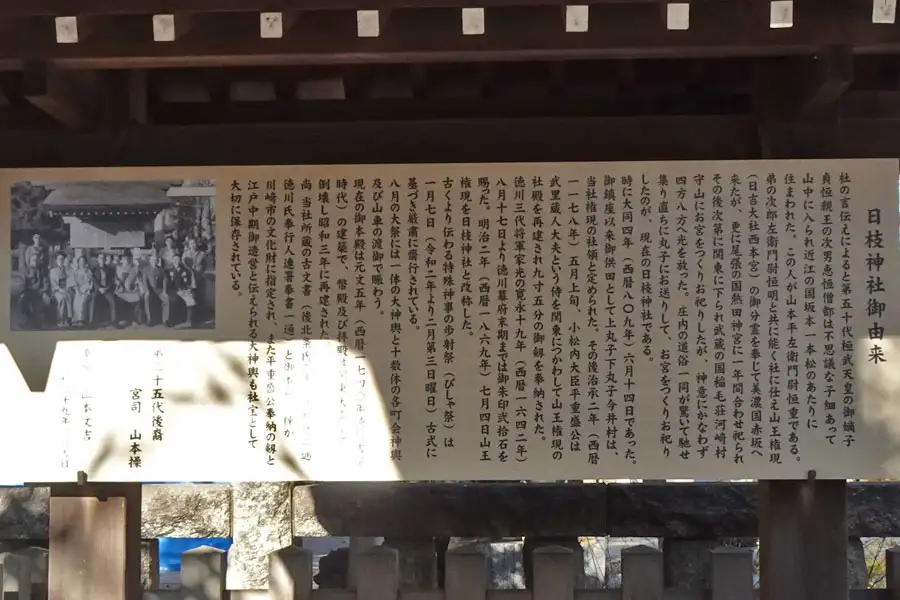 日枝神社御由来
社の言伝えによると第五十代桓武天皇の御嫡子
貞恒親王の次男恵恒僧都は不思議な子細あって
山中に入られ近江の国坂本一本松のあたりに
住まわれた。この人が山本平左衛門尉恒重である。
弟の次郎左衛門尉恒明と共に能く社に仕え山王権現
（日吉大社西本宮）の御分霊を奉じて美濃国赤坂へ
来たが、更に尾張の国熱田神宮に一年間合わせ祀られ
その後次第に関東に下られ武蔵の国稲毛荘河崎村
守山にお宮をつくりお祀りしたが、神意にかなわず
四方八方へ光を放った。庄内の道俗一同が驚いて馳せ
集り直ちに丸子にお送りして、お宮をつくりお祀り
したのが、現在の日枝神社である。
時に大同四年（西暦八〇九年）六月十四日であった。
御鎮座以来御供田として上丸子下丸子今井村は、
当社権現の社領と定められた。その後治承二年（西暦
一一七八年）五月上旬、小松内大臣平重盛公は
武里蔵人大夫という侍を関東につかわして山王権現の
社殿を再建され九寸五分の御劔を奉納された。
徳川三代将軍家光の寛永十九年（西暦一六四二年）
八月十七日より徳川幕府末期までは御朱印弐拾石を
賜った。明治二年（西暦一八六九年）七月四日山王
権現を日枝神社と改称した。
古くより伝わる特殊神事の歩射祭（びしゃ祭）は
一月七日（令和二年より二月第三日曜日）古式に
基づき厳粛に齋行されている。
八月の大祭には一体の大神輿と十数体の各町会神輿
及び山車の渡御で賑わう。
現在の御本殿は元文五年（西暦一七四〇年
時代）の建築で、幣殿及び拝殿
倒壊し昭和三年に再建された
尚、当社所蔵の古文書（後北条氏
徳川氏奉行人連署奉書一通）と御
川崎市の文化財に指定され、また平重盛公奉納の劔と
江戸中期御造営と伝えられる大神輿も社宝として
大切に保存されている。
十五代後裔
宮司　山本操